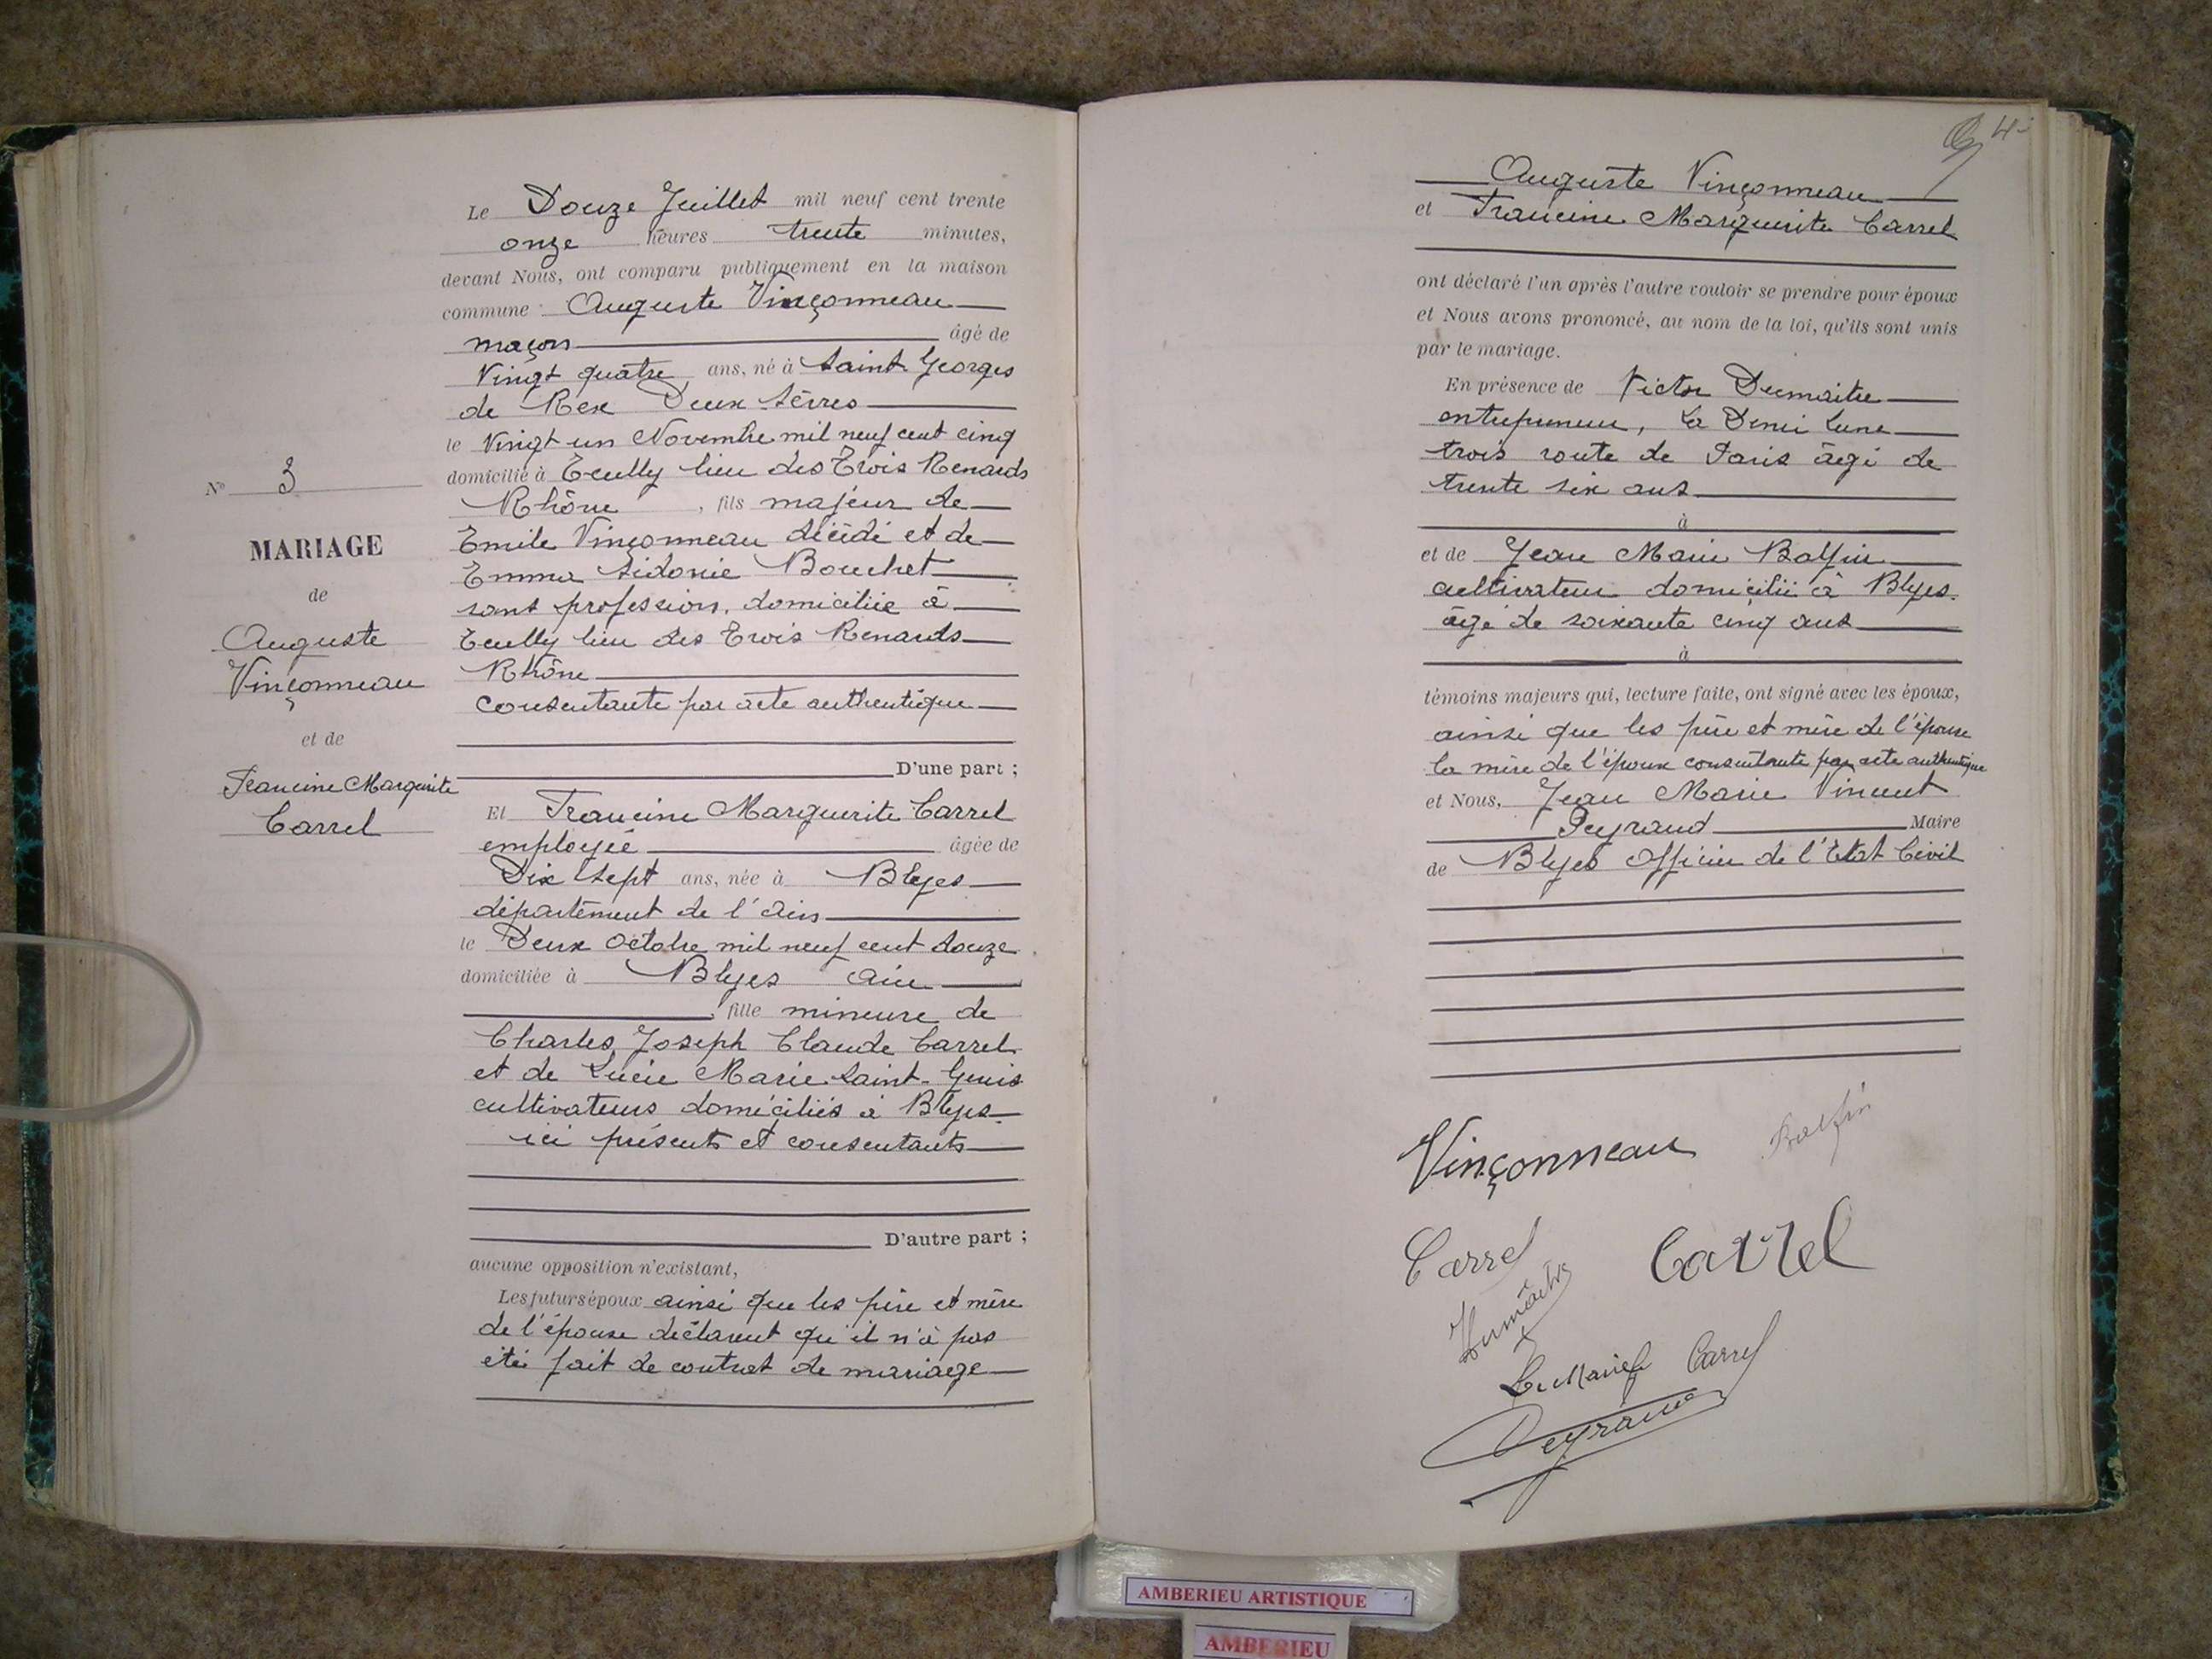 Le Douze Juillet mil neuf cent trente
onze heures trente minutes,
devant Nous, ont comparu publiquement en la maison
commune : Auguste Vinçonneau
maçon âgé de
Vingt quatre ans, né à Saint-Georges
de Rex Deux-Sèvres
le Vingt un Novembre mil neuf cent cinq
domicilié à Ecully lieu des Trois Renards
Rhône, fils majeur de
Emile Vinçonneau décédé et de
Emma Sidonie Bouchet
sans profession, domiciliée à
Ecully lieu des Trois Renards
Rhône
consentante par acte authentique
D'une part ;
Et Francine Marguerite Carrel
employée âgée de
Dix Sept ans, née à Blyes
département de l'Ain
le Deux Octobre mil neuf cent douze
domiciliée à Blyes Ain
, fille mineure de
Charles Joseph Claude Carrel
et de Lucie Marie Saint-Genis
cultivateurs domiciliés à Blyes
ici présents et consentants
D'autre part ;
aucune opposition n'existant,
Les futurs époux ainsi que les père et mère
de l'épouse déclarent qu'il n'a pas
été fait de contrat de mariage
N° 3
MARIAGE
de
Auguste
Vinçonneau
et de
Francine Marguerite
Carrel
4
Auguste Vinçonneau
et Francine Marguerite Carrel
ont déclaré l'un après l'autre vouloir se prendre pour époux
et Nous avons prononcé, au nom de la loi, qu'ils sont unis
par le mariage.
En présence de Victor Dumaitre
entrepreneur, La Demi Lune
trois route de Paris âgé de
trente six ans
à
et de Jean Marie Balfin
cultivateur domicilié à Blyes
âgé de soixante cinq ans
à
témoins majeurs qui, lecture faite, ont signé avec les époux,
ainsi que les père et mère de l'épouse
la mère de l'époux consentante par acte authentique
et Nous, Jean Marie Vincent
Peyraud Maire
de Blyes Officier de l'Etat Civil
Vinçonneau Balfin
Carrel Carrel
Dumaitre
Carrel
Peyraud
AMBERIEU ARTISTIQUE
AMBERIEU